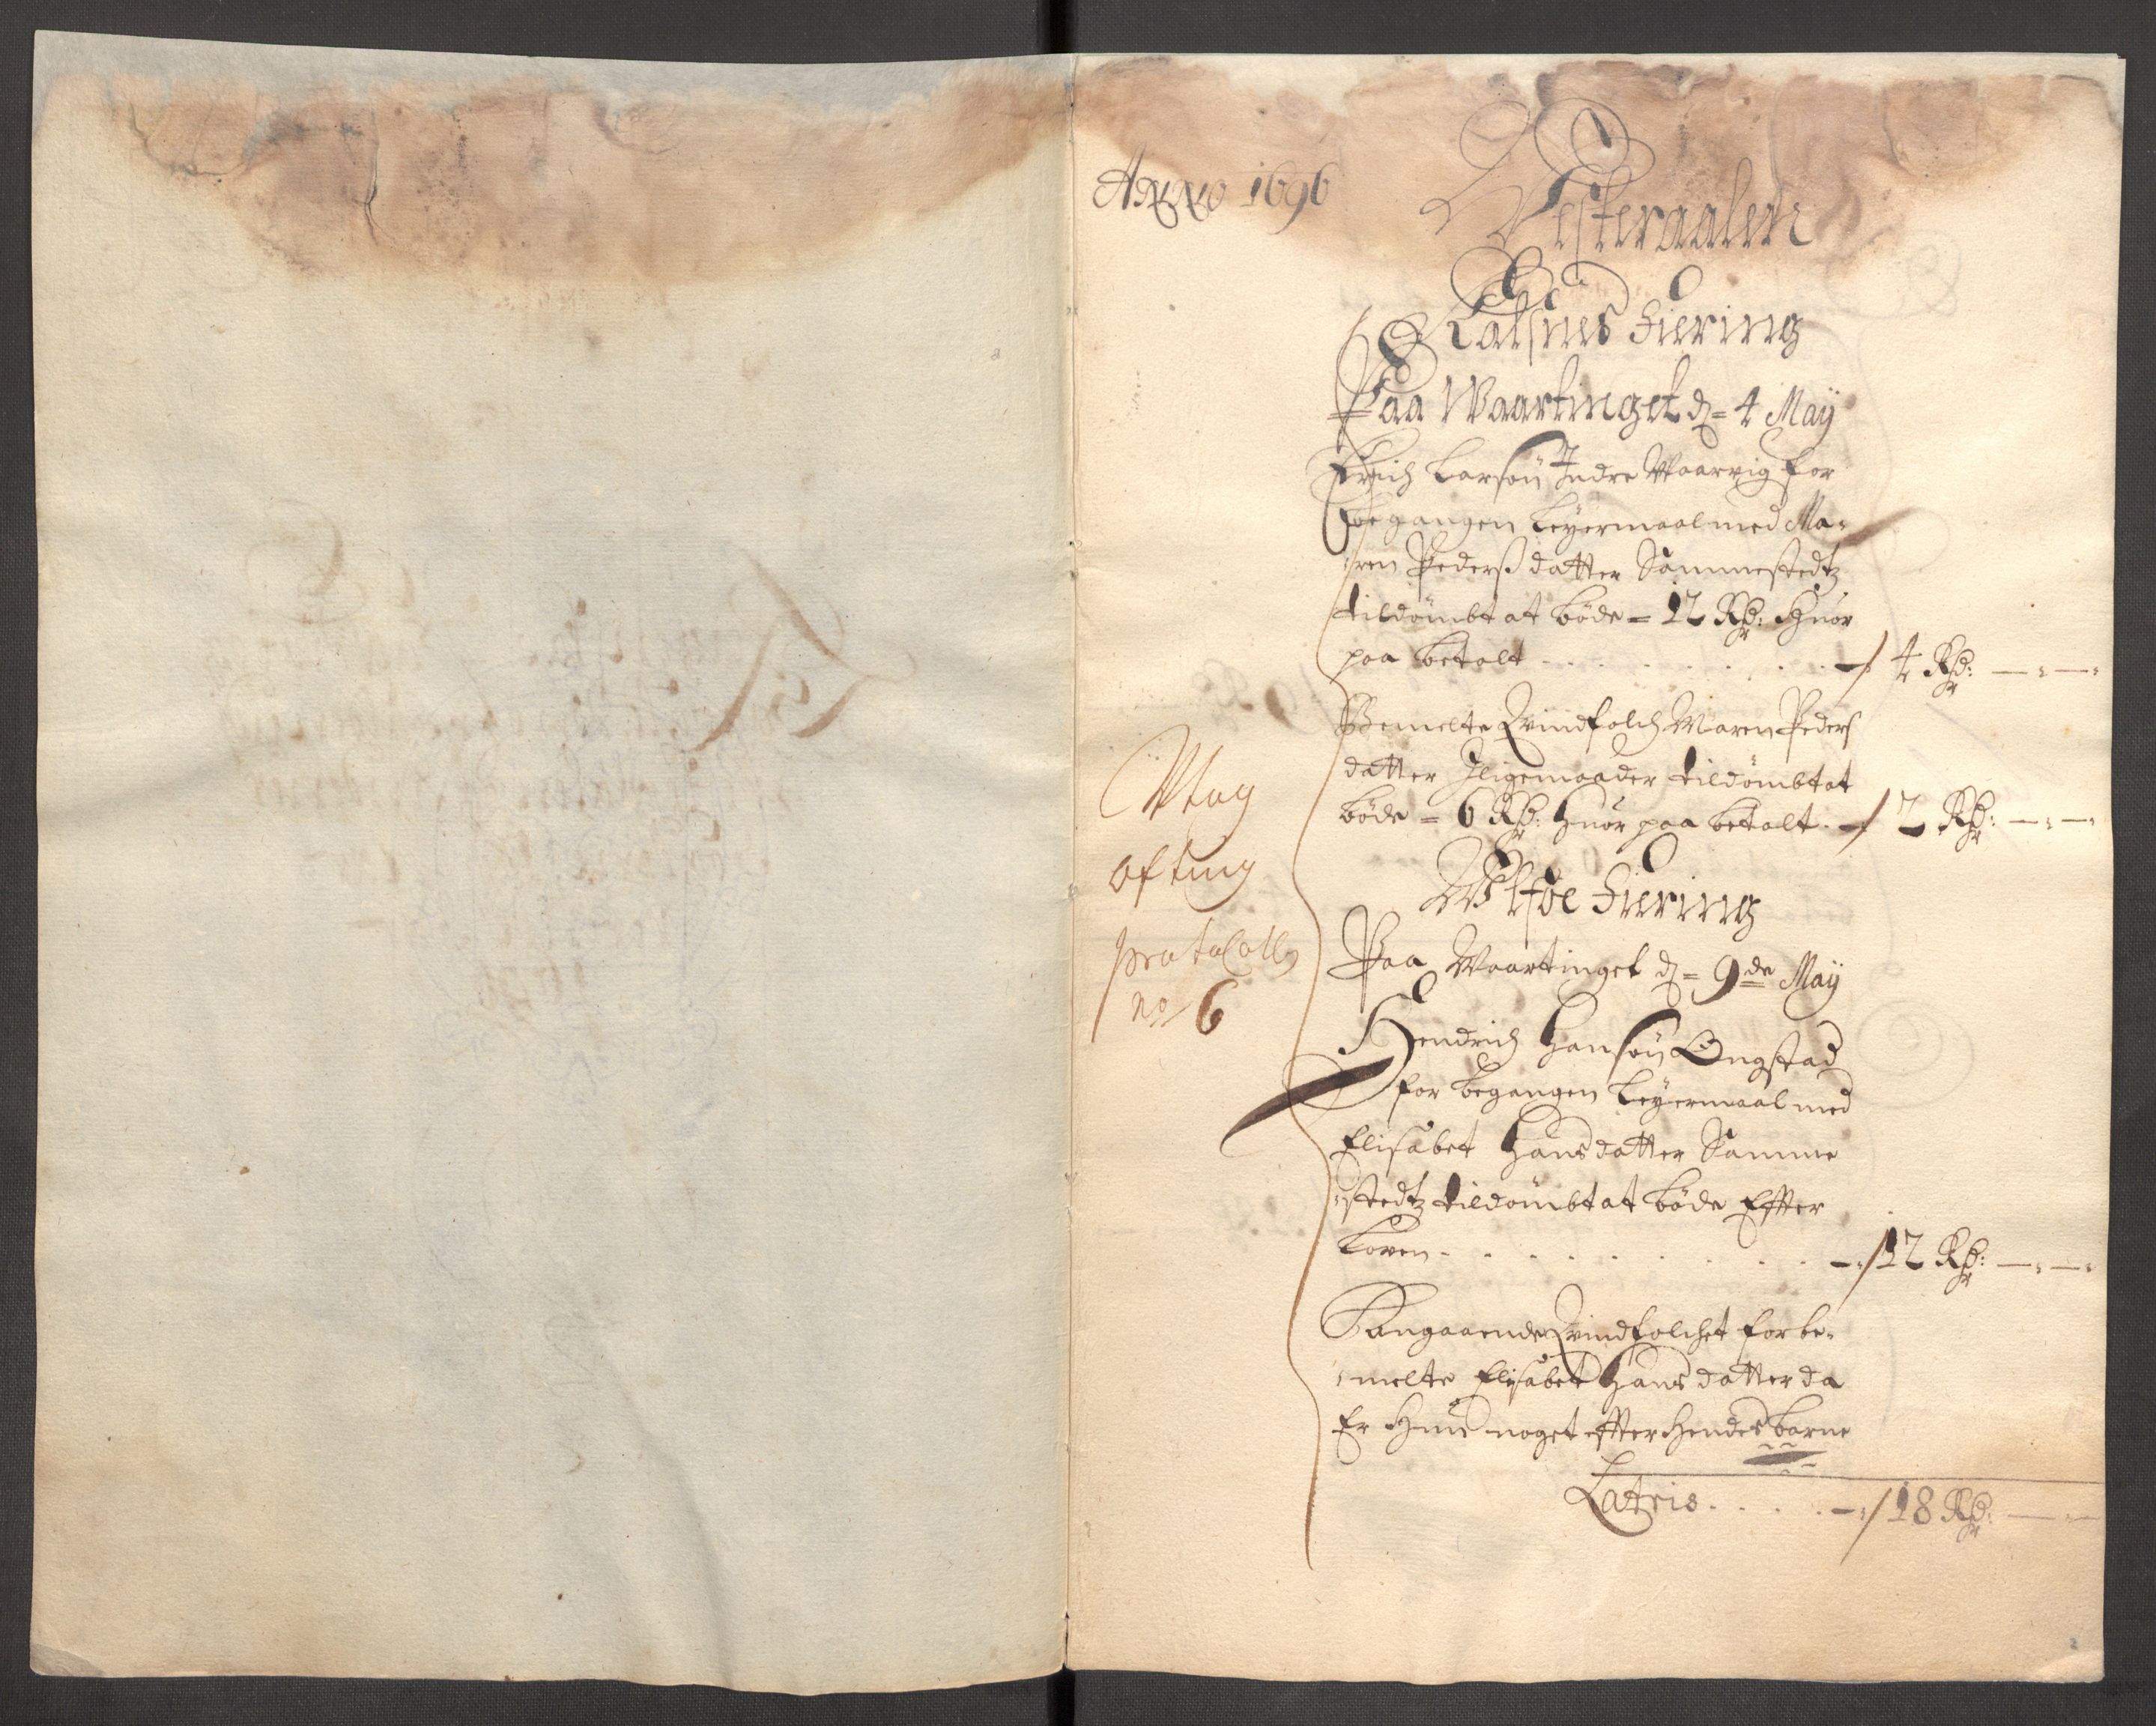 Anno 1696
Vesteraalen
Paa Waartinget d= 4 Maÿ
Erich Larsøn Indre Waarvig for
begangen Leÿermaal med Ma-
ren Pederß datter Sammestedtz
tildømbt at bøde = 12 Rd: Huor
paa betalt - - - - - -/ 4 Rdr: — : —
Bemelte Qvindfolch Maren Peders
datter Iligemaader tildømbt at
bøde = 6 Rdr: huor paa betalt - / 2 Rdr: — : —
fiering
Paa Waartinget d= 9de Maÿ
Hendrich Hansøn Ongstad
for begangen Leÿermaal med
Elisabet Hansdatter Samme
stedtz tildømbt at bøde Efter
Loven - - - - - - -/ 12 Rdr: — : —
Qvindfolchet forbe-
melte Elisabet Hansdatter da
Er Huus noget efter hendes barne
Lateris - - - - -/ 18 Rdr: — : —
of ting
protocoll
no 6